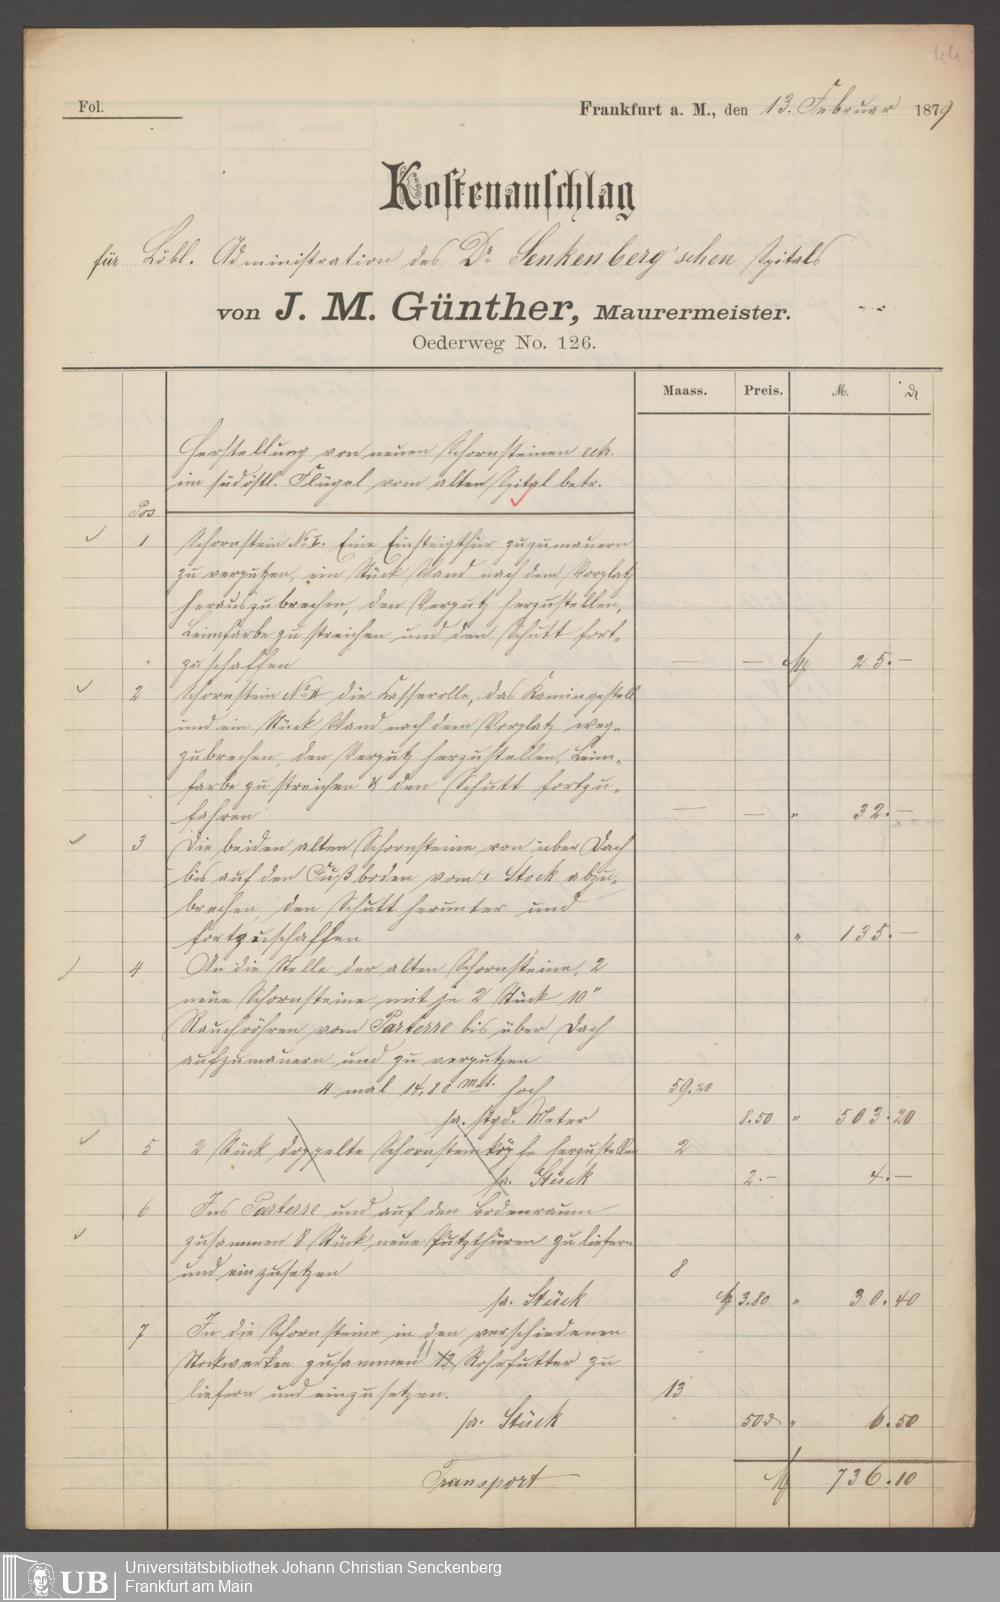 44
Fol.
Frankfurt a. M., den 13. Februar 1879
Kostenanschlag
für Löbl. Administration des Dr. Senkenberg'schen Spitals
von J. M. Günther, Maurermeister.
Oederweg No. 126.
Maass. Preis. M. ₰
Herstellung von neuen Schornsteinen ect.
im südöstl. Flügel vom alten Spital betr.
Pos.
1 Schornstein No I. Eine Einsteigthür zuzumauern
zu verputzen, ein Stück Wand nach dem Vorplatz
herauszubrechen, den Verputz herzustellen,
Leimfarbe zu streichen und den Schutt fort-
zuschaffen — — M 25. —
2 Schornstein No II die Casserolle, das Kamingestell
und ein Stück Wand nach dem Vorplatz weg-
zubrechen, den Verputz herzustellen, Leim-
farbe zu streichen & den Schutt fortzu-
fahren — — " 32. —
3 Die beiden alten Schornsteine von über Dach
bis auf den Fußboden vom 1 Stock abzu-
brechen, den Schutt herunter und
fortzuschaffen " 135. —
4 An die Stelle der alten Schornsteine, 2
neue Schornsteine mit je 2 Stück 10"
Rauchröhren vom Parterre bis über Dach
aufzumauern und zu verputzen
4 mal 14,80 Met. hoch 59.20
pr. stgd. Meter 8.50 " 503.20
5 2 Stück doppelte Schornsteinköpfe herzustellen 2
pr. Stück 2. — 4. —
6 Ins Parterre und auf den Bodenraum
zusammen 8 Stück neue Putzthüren zu liefern
und einzusetzen 8
pr. Stück M 3.80 " 30.40
7 In die Schornsteine in den verschiedenen
Stockwerken zusammen 11 13 Rohrfutter zu
liefern und einzusetzen. 13
pr. Stück 50 ₰ " 6.50
Transport M 736.10
UB
Universitätsbibliothek Johann Christian Senckenberg
Frankfurt am Main